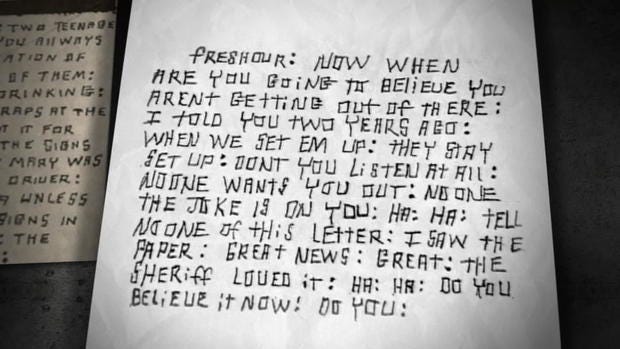 TWO TEENAGE
YOU AlWAYS
ATION OF
OF THEM:
DRINKING:
RAPS AT THE
IT FOR
THE SIGNS
MARY WAS
DRIVER:
UNLESS
SIGNS IN
: THE
FRESHOUR: NOW WHEN
ARE YOU GOING TO BELIEVE YOU
ARENT GETTING OUT OF THERE:
I TOLD YOU TWO YEARS AGO:
WHEN WE SET EM UP: THEY STAY
SET UP: DONT YOU LISTEN AT All:
NOONE WANTS YOU OUT: NOONE
THE JOKE IS ON YOU: HA: HA: TELL
NOONE OF THIS LETTER: I SAW THE
PAPER: GREAT NEWS: GREAT: THE
SHERIFF LOVED iT: HA: HA: DO YOU
BELIEVE iT NOW! DO YOU: